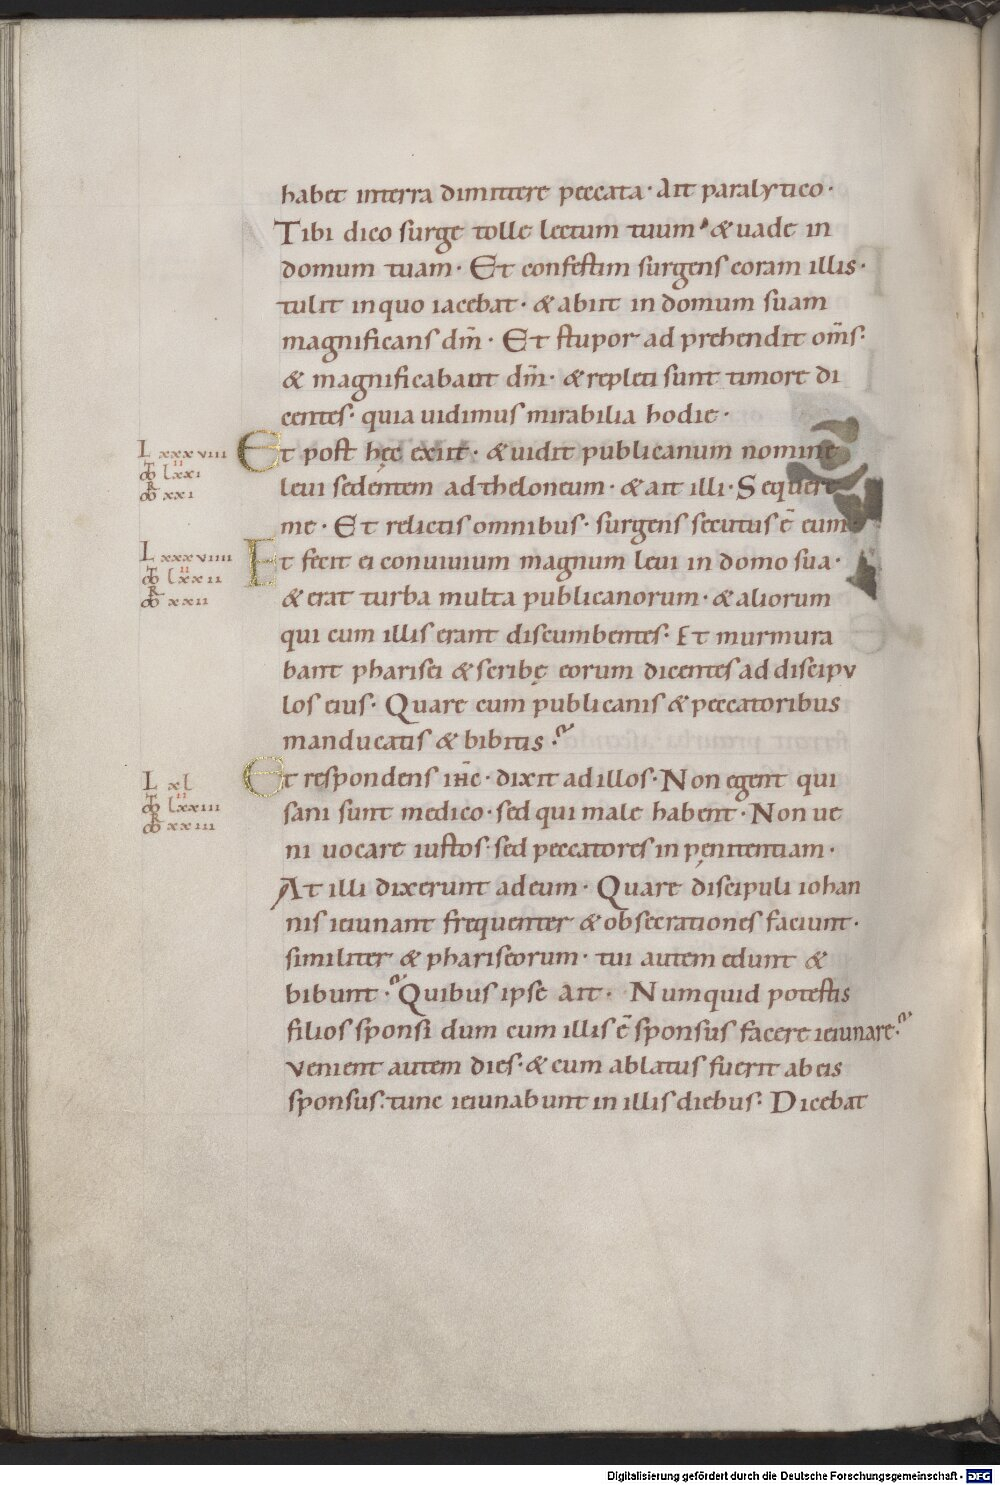 habet interra dimittere peccata · Ait paralytico ·
Tibi dico surge tolle lectum tuum · & uade in
domum tuam · Et confestim surgens coram illis ·
tulit inquo iacebat · & abiit in domum suam
magnificans dm̄ · Et stupor ad prehendit om̄s ·
& magnificabant dm̄ · & repleti sunt timore di
centes · quia uidimus mirabilia hodie ·
L xxxviii
Et post hęc exiit · & uidit publicanum nomine
lxxi
leui sedentem adtheloneum · & ait illi · Sequere
xxi
me · Et relictis omnibus · surgens secutus ē eum
L xxxviiii
Et fecit ei conuiuium magnum leui in domo sua ·
lxxii
& erat turba multa publicanorum · & aliorum
xxii
qui cum illis erant discumbentes · Et murmura
bant pharisei & scribę eorum dicentes ad discipu
los eius · Quare cum publicanis & peccatoribus
manducatis & bibitis ·
L xl
Et respondens ih̄c · dixit ad illos · Non egent qui
lxxiii
sani sunt medico · sed qui male habent · Non ue
xxiii
ni uocare iustos · sed peccatores in pęnitentiam ·
At illi dixerunt adeum · Quare discipuli iohan
nis ieiunant frequenter & obsecrationes faciunt ·
similiter & phariseorum · tui autem edunt &
bibunt · Quibus ipse ait · Numquid potestis
filios sponsi dum cum illis ē sponsus facere ieiunare ·
venient autem dies · & cum ablatus fuerit ab eis
sponsus · tunc ieiunabunt in illis diebus · Dicebat
Digitalisierung gefördert durch die Deutsche Forschungsgemeinschaft - DFG